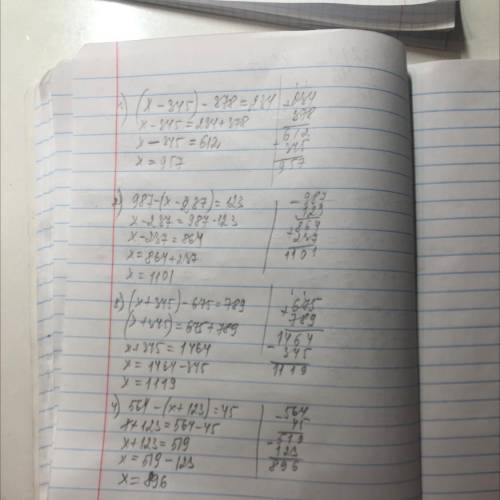 1) (x-345)-378=234
x-345=234+378
x-345=612
x=957
+234
378
612
+345
957
2) 987-(x-237)=123
x-237=987-123
x-237=864
x=864+237
x=1101
-987
123
864
+237
1101
3) (x+345)-675=789
(x+345)=675+789
x+345=1464
x=1464-345
x=1119
+675
789
1464
-345
1119
4) 564-(x+123)=45
x+123=564-45
x+123=519
x=519-123
x=896
-564
45
-519
123
896